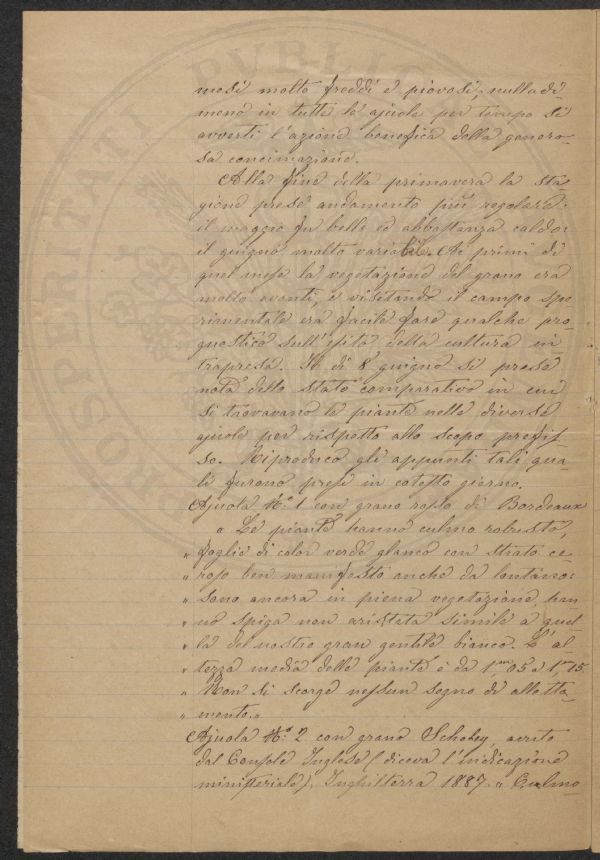 mesi molto freddi e piovosi; nulladi
meno in tutte le ajuole per tempo si
avvertì l'azione benefica della genero-
sa concimazione.
Alla fine della primavera la sta-
gione prese andamento più regolare:
il maggio fu bello ed abbastanza caldo:
il giugno molto variabile. Ai primi di
quel mese la vegetazione del grano era
molto avanti, e visitando il campo spe
rimentale era facile fare qualche pro-
gnostico sull'esito della cultura in
trapresa. Il dì 8 giugno si prese
nota dello stato comparativo in cui
si trovavano le piante nelle diverse
ajuole per rispetto allo scopo prefis
so. Riproduco gli appunti tali qua-
li furono presi in cotesto giorno.
Ajuola N.º 1 con grano rosso di Bordeaux
" Le piante hanno culmo robusto,
" foglie di color verde glauco con strato ce-
" roso ben manifesto anche da lontano:
" sono ancora in piena vegetazione, han-
" no spiga non aristata simile a quel-
" la del nostro gran gentile bianco. L'al-
" tezza media delle piante è da 1,m05 a 1,m15
" Non si scorge nessun segno di alletta-
" mento."
Ajuola N.º 2 con grano Scholey, avuto
dal Console Inglese (diceva l'indicazione
ministeriale), Inghilterra 1887. " Culmo
PVBLIC
HOSPITATI